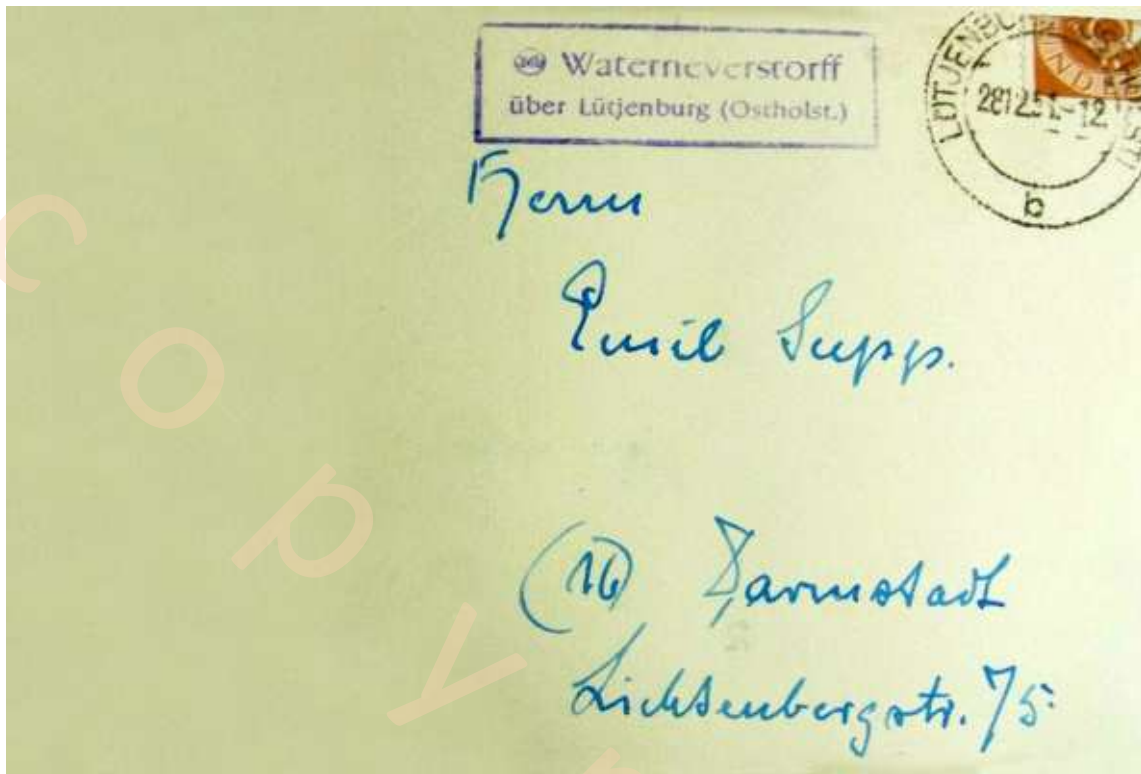 Waterneverstorff
über Lütjenburg (Ostholst.)
LÜTJENBU
28.12.51.-12
b
Herrn
Emil Supp.
(16) Darmstadt
Lichtenbergstr. 75
copy